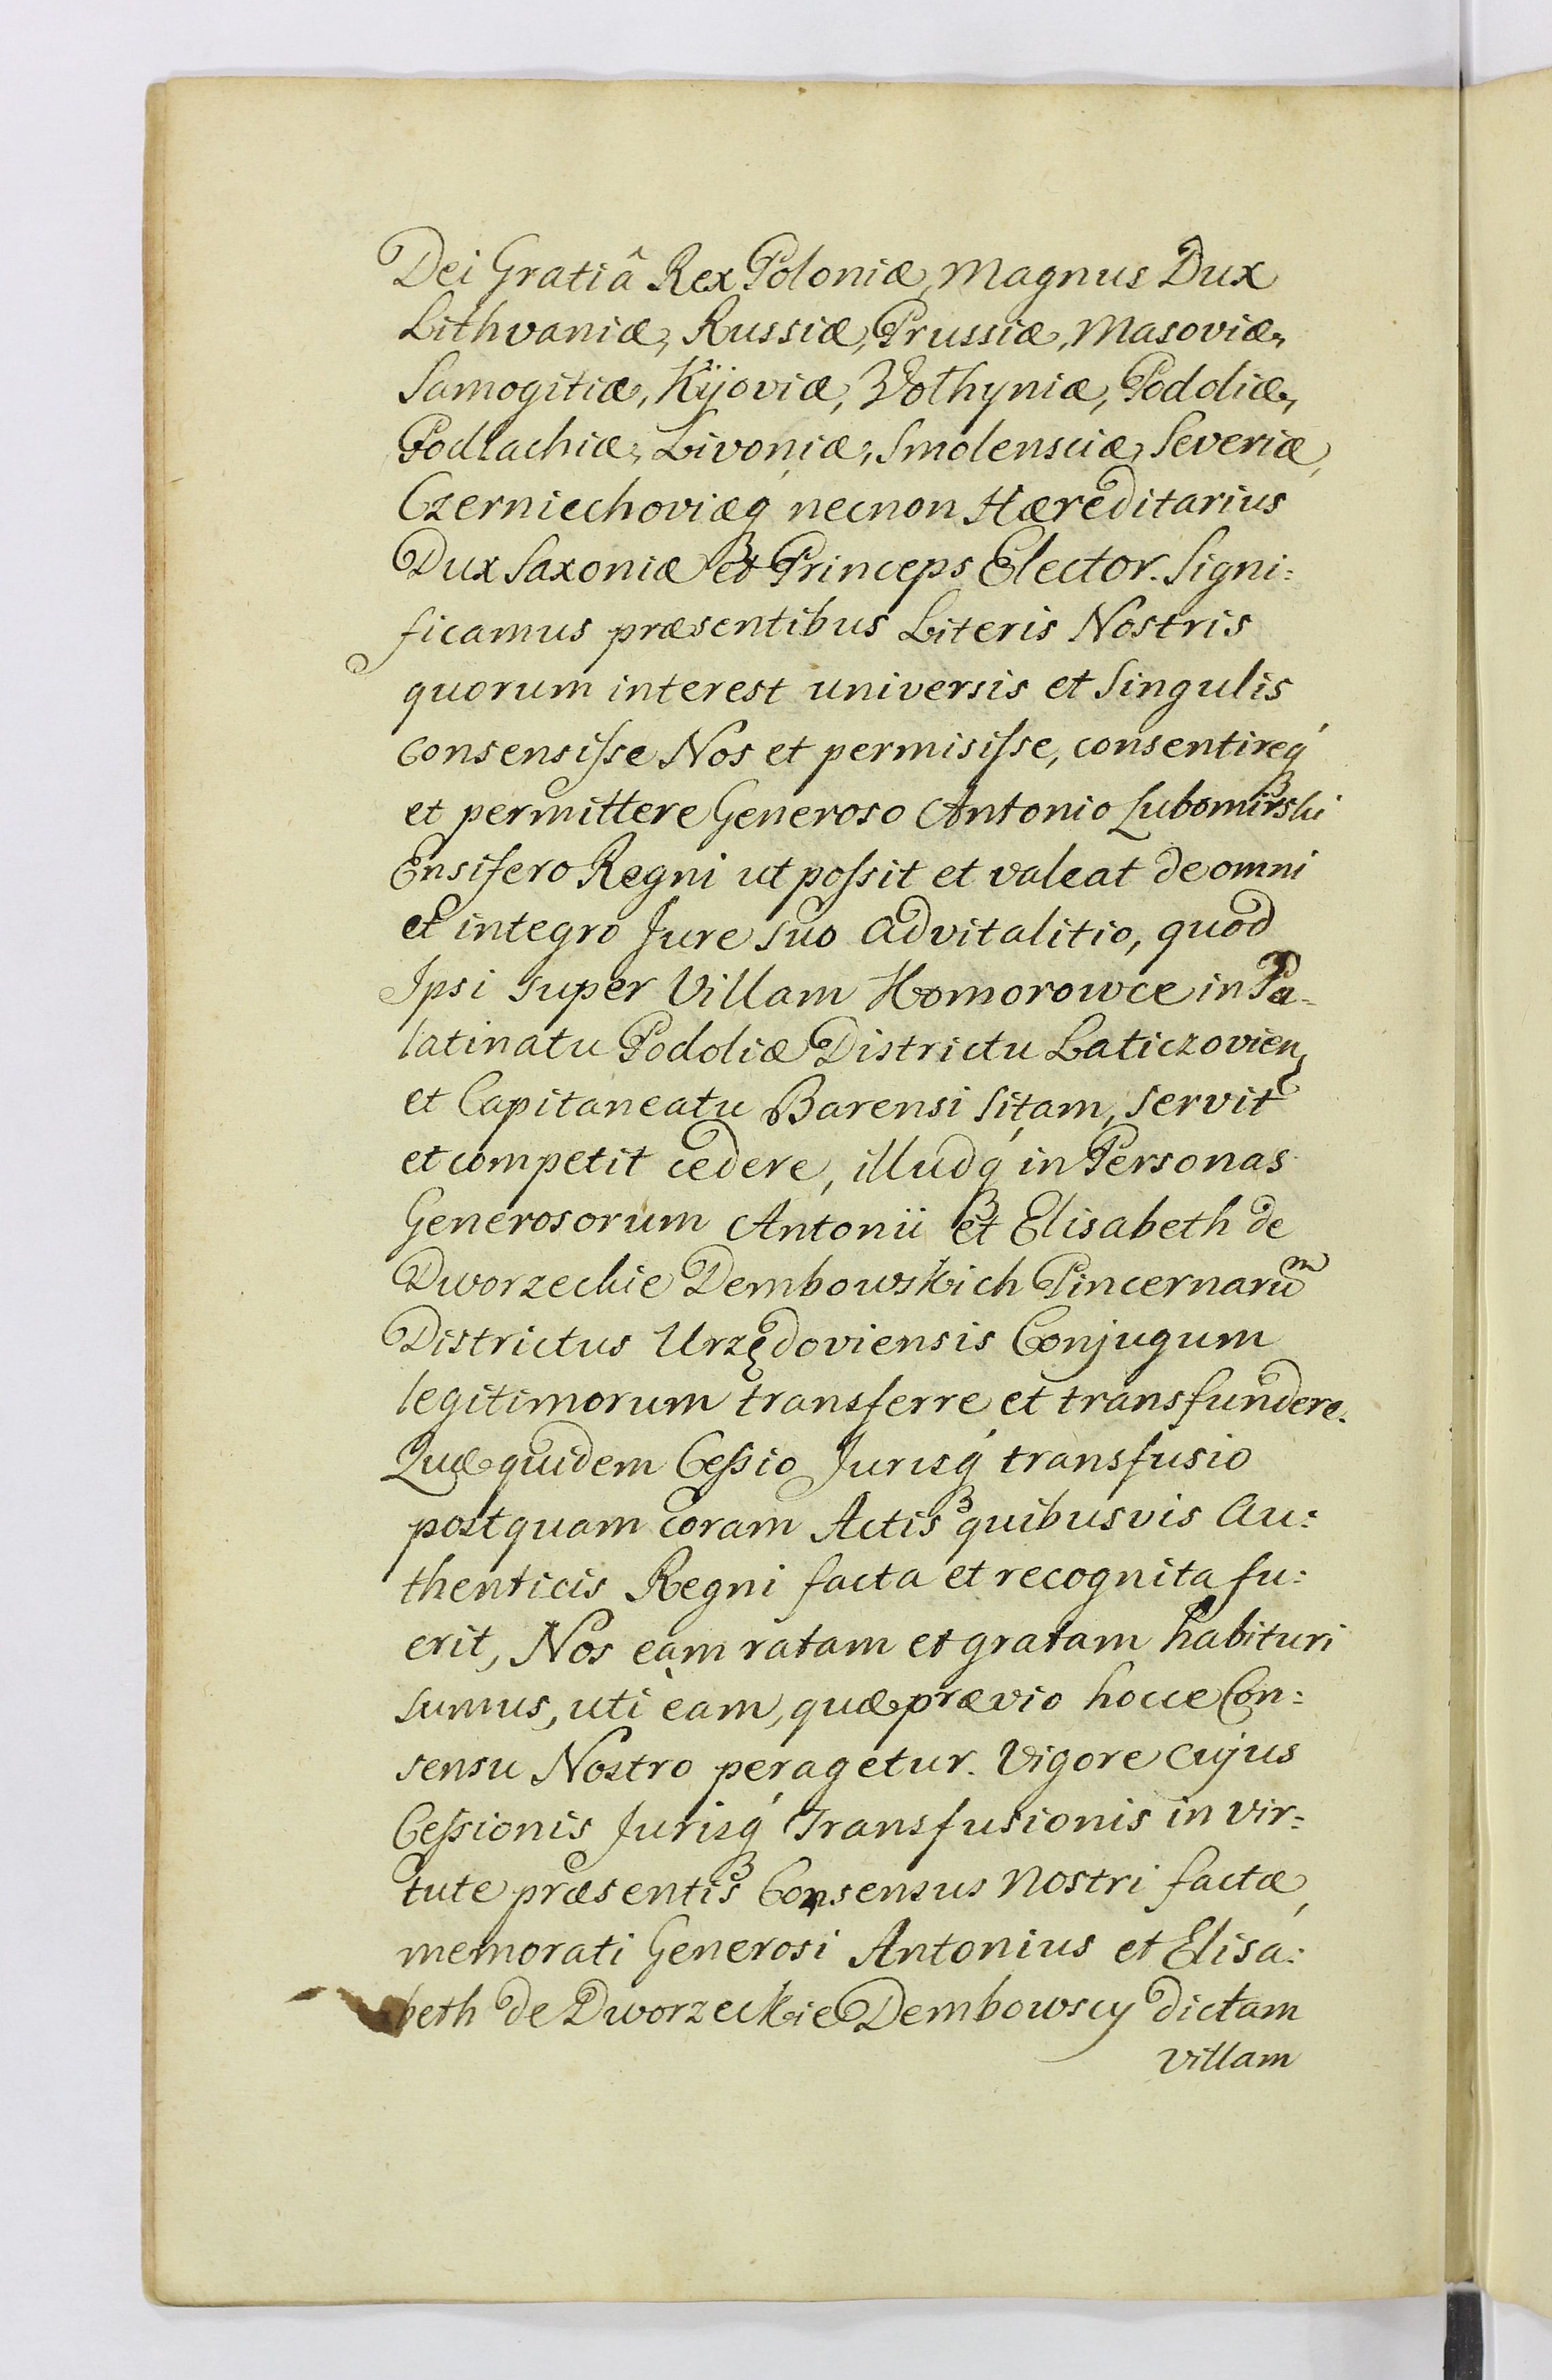 Dei Gratiâ Rex Poloniæ, Magnus Dux
Lithvaniæ, Russiæ, Prussiæ, Masoviæ,
Samogitiæ, Kijoviæ, Volhyniæ, Podoliæ,
Podlachiæ, Livoniæ, Smolensciæ, Severiæ,
Czerniechoviæq́ necnon Hæreditarius
Dux Saxoniæ et Princeps Elector. Signi:
ficamus præsentibus Literis Nostris
quorum interest universis et Singulis
consensiſse Nos et permisiſse, consentireq́
et permittere Generoso Antonio Lubomirski
Ensifero Regni ut poſsit et valeat de omni
et integro Jure suo advitalitio, quod
Ipsi super Villam Homorowce in Pa-
latinatu Podoliæ Districtu Laticzovien
et Capitaneatu Barensi sitam, servit
et competit cedere, illudq́ in Personas
Generosorum Antonii et Elisabeth de
Dworzeckie Dembowskich Pincernarum
Districtus Urzędoviensis Conjugum
legitimorum transferre et transfundere.
Quæ quidem Ceſsio Jurisq́ transfusio
postquam coram Actis quibusvis Au:
thenticis Regni facta et recognita fu:
erit, Nos eam ratam et gratam habituri
sumus, uti eam, quæ prævio hocce Con:
sensu Nostro peragetur. Vigore cujus
Ceſsionis Jurisq́ Transfusionis in vir:
tute præsentis Consensus Nostri factæ,
memorati Generosi Antonius et Elisa:
beth de Dworzeckie Dembowscy dictam
Villam